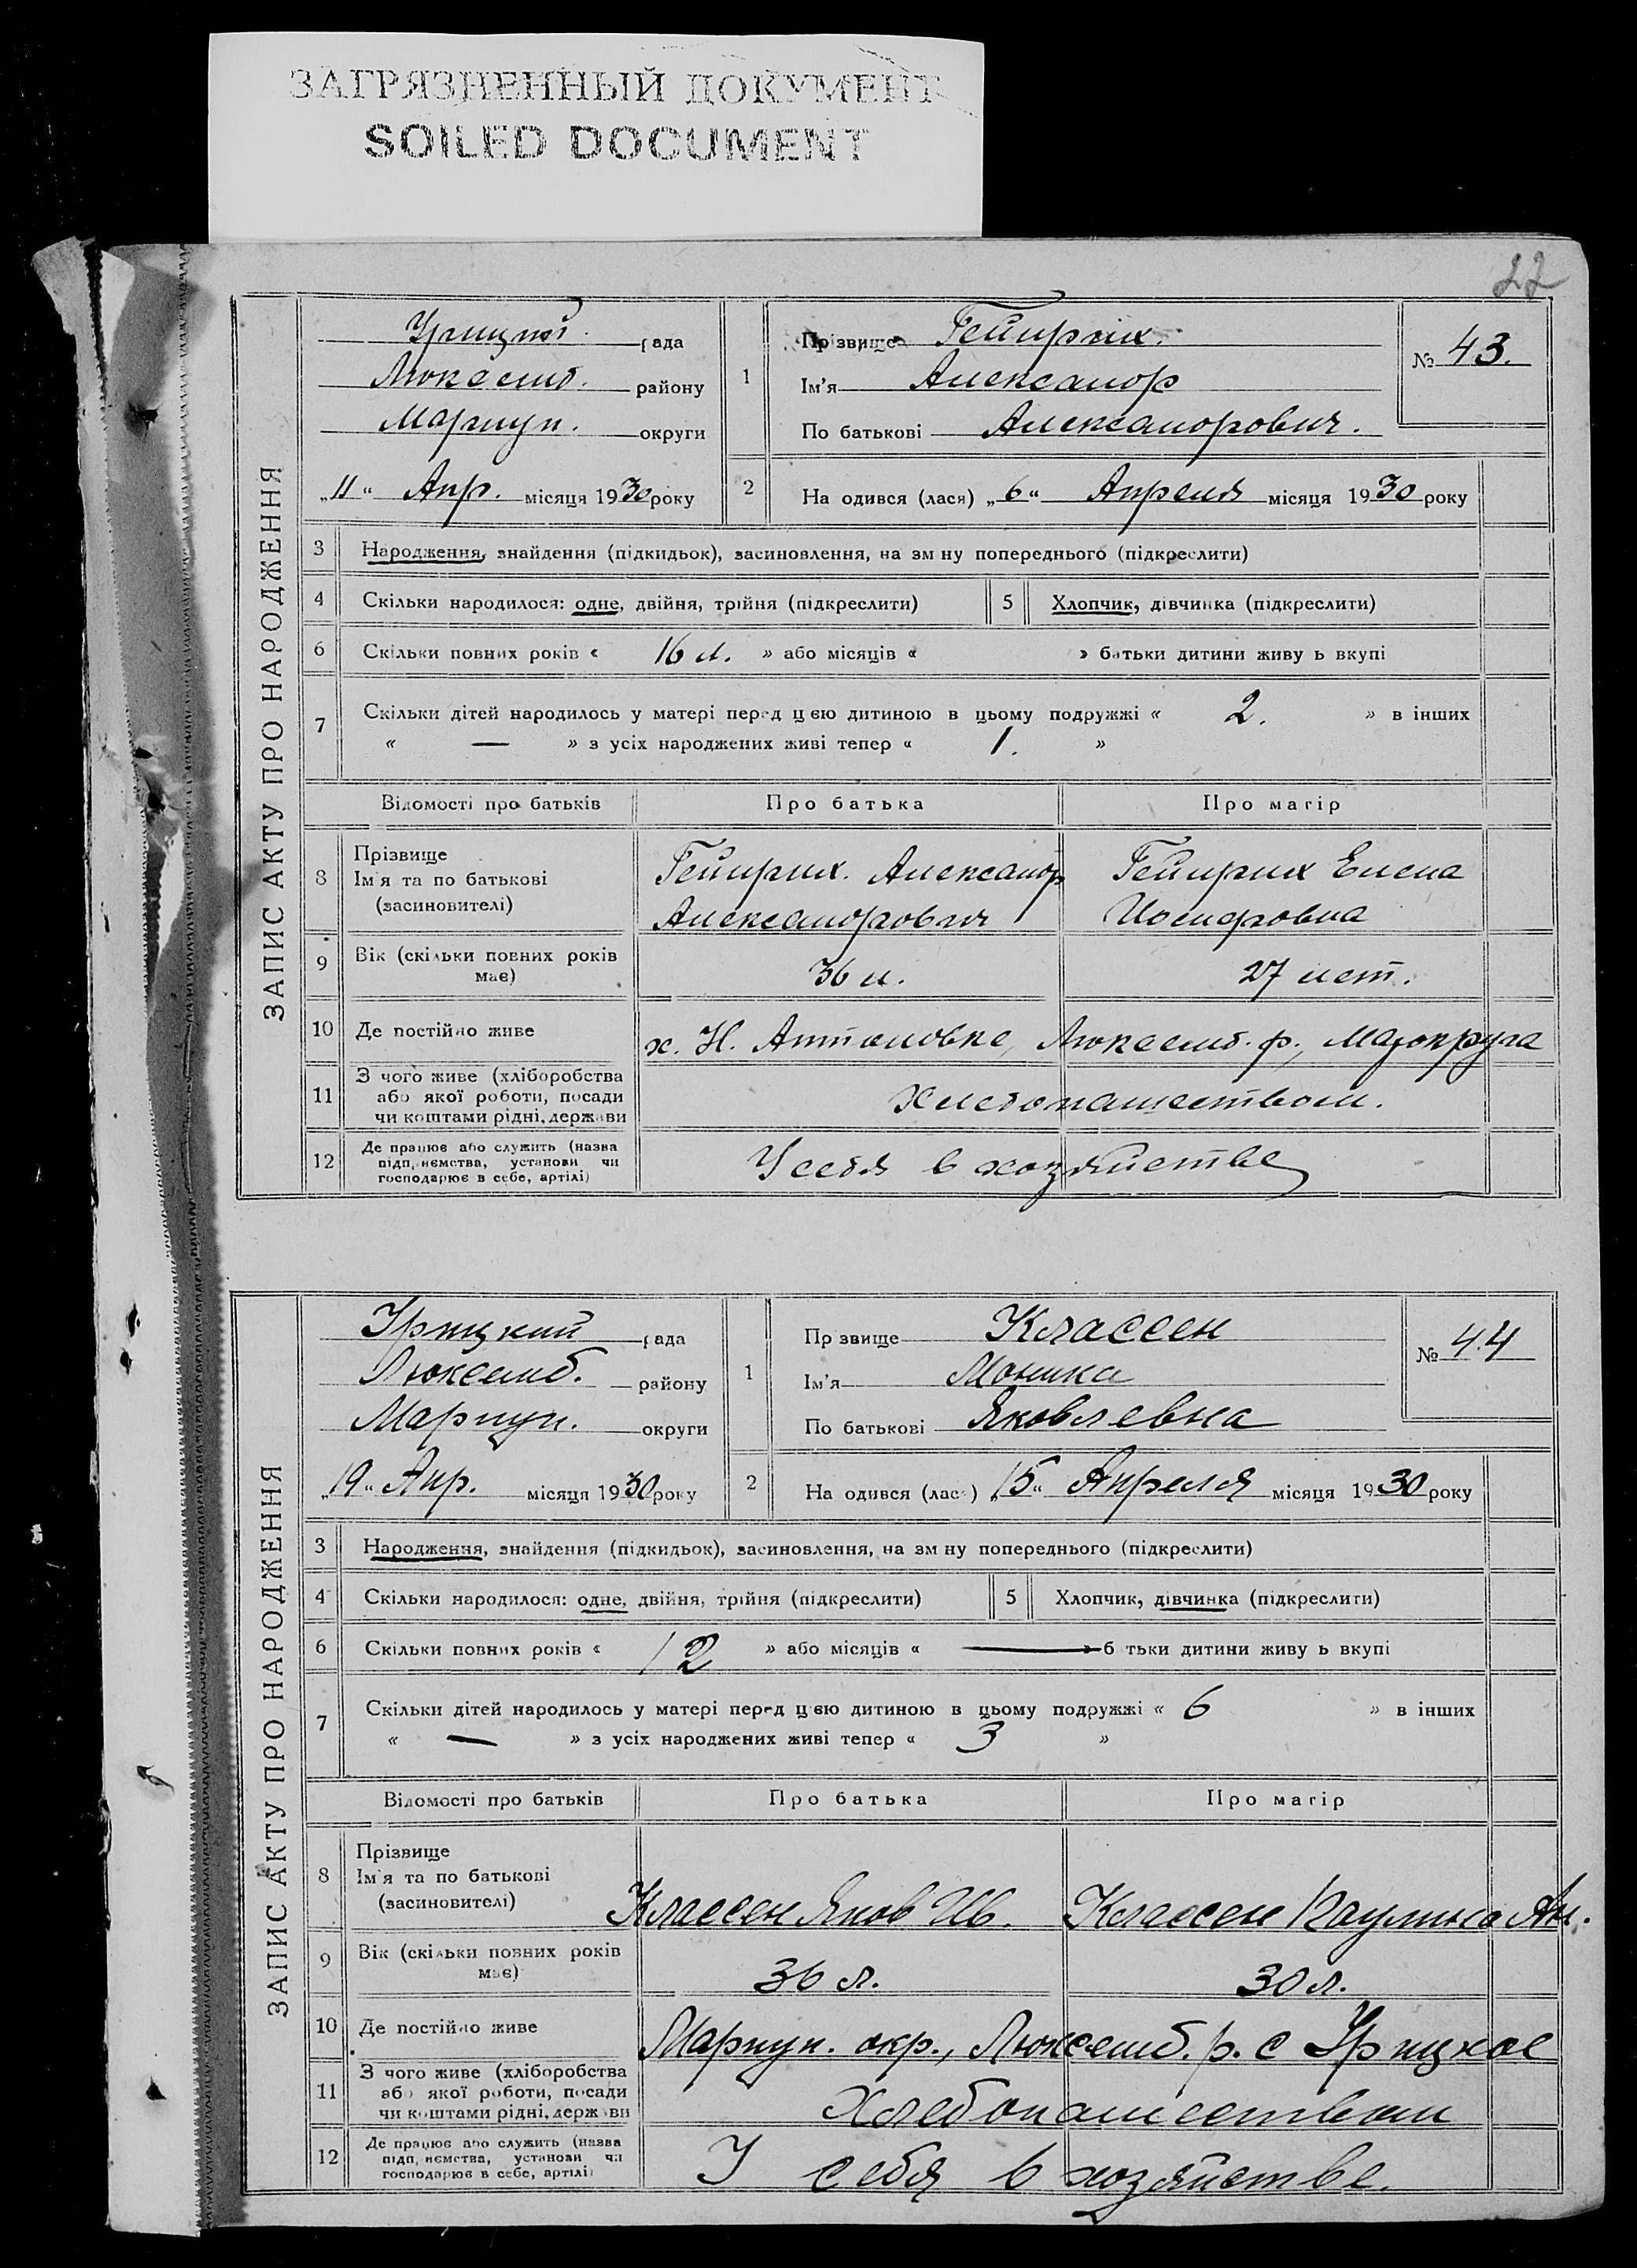 ЗАГРЯЗНЕННЫЙ ДОКУМЕНТ
SOILED DOCUMENT
22
ЗАПИС АКТУ ПРО НАРОДЖЕННЯ
Урицкой рада
Люксемб. району
Мариуп. округи
„11“ Апр. місяця 1930 року
1
Прізвище Гейнрих.
Ім'я Александр
По батькові Александрович.
№ 43.
2 На одився (лася) „6“ Апреля місяця 1930 року
3 Народження, знайдення (підкидьок), засиновлення, на зм ну попереднього (підкреслити)
4 Скільки народилося: одне, двійня, трійня (підкреслити) 5 Хлопчик, дівчинка (підкреслити)
6 Скільки повних років « 16 л. » або місяців « » батьки дитини живу ь вкупі
7 Скільки дітей народилось у матері перед цєю дитиною в цьому подружжі « 2. » в інших
« — » з усіх народжених живі тепер « 1. »
Відомості про батьків Про батька Про матір
8 Прізвище
Ім'я та по батькові
(засиновителі)
Гейнрих. Александр
Александрович
Гейнрих Елена
Иосифовна
9 Вік (скільки повних років
має)
36 л. 27 лет.
10 Де постійно живе х. Н. Антоновке, Люксемб. р., Мар округа
11 З чого живе (хліборобства
або якої роботи, посади
чи коштами рідні, держави
Хлебопашеством.
12 Де працює або служить (назва
підп, иємства, установи чи
господарює в себе, артілі)
У себя в хозяйстве
ЗАПИС АКТУ ПРО НАРОДЖЕННЯ
Урицкий рада
Люксемб. району
Мариуп. округи
„19“ Апр. місяця 1930 року
1
Пр звище Классен
Ім'я Моника
По батькові Яковлевна
№ 44
2 На одився (лас ) „15“ Апреля місяця 1930 року
3 Народження, знайдення (підкидьок), засиновлення, на зм ну попереднього (підкреслити)
4 Скільки народилося: одне, двійня, трійня (підкреслити) 5 Хлопчик, дівчинка (підкреслити)
6 Скільки повних років « 12 » або місяців « — » б тьки дитини живу ь вкупі
7 Скільки дітей народилось у матері перед цєю дитиною в цьому подружжі « 6 » в інших
« — » з усіх народжених живі тепер « 3 »
Відомості про батьків Про батька Про матір
8 Прізвище
Ім'я та по батькові
(засиновителі)
Классен Яков Ив. Классен Паулина Ан.
9 Вік (скільки повних років
має)
36 л. 30 л.
10 Де постійно живе Мариуп. окр., Люксемб. р. с Урицкое
11 З чого живе (хліборобства
або якої роботи, посади
чи коштами рідні, держ ви
Хлебопашеством
12 Де працює або служить (назва
підп, иємства, установи чи
господарює в себе, артілі)
У себя в хозяйстве.